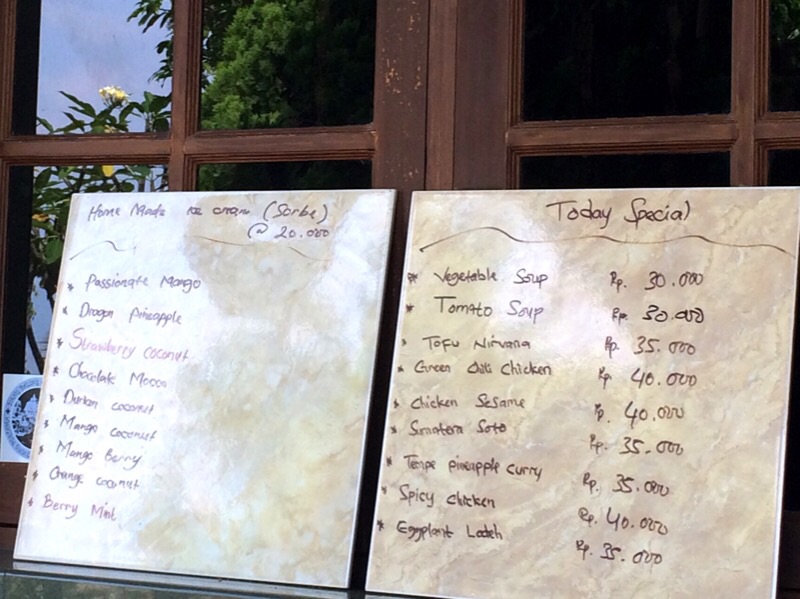 Home Made ice cream (Sorbe)
@ 20.000
* Passionate Mango
* Dragon Pineapple
* Strawberry coconut
* Chocolate Mocca
* Durian coconut
* Mango coconut
* Mango Berry
* Orange coconut
* Berry Mint
Today Special
* Vegetable Soup Rp. 30.000
* Tomato Soup Rp. 30.000
* Tofu Nirvana Rp. 35.000
* Green Chili Chicken Rp. 40.000
* Chicken Sesame Rp. 40.000
* Sumatera Soto Rp. 35.000
* Tempe pineapple curry Rp. 35.000
* Spicy chicken Rp. 40.000
* Eggplant Lodeh Rp. 35.000